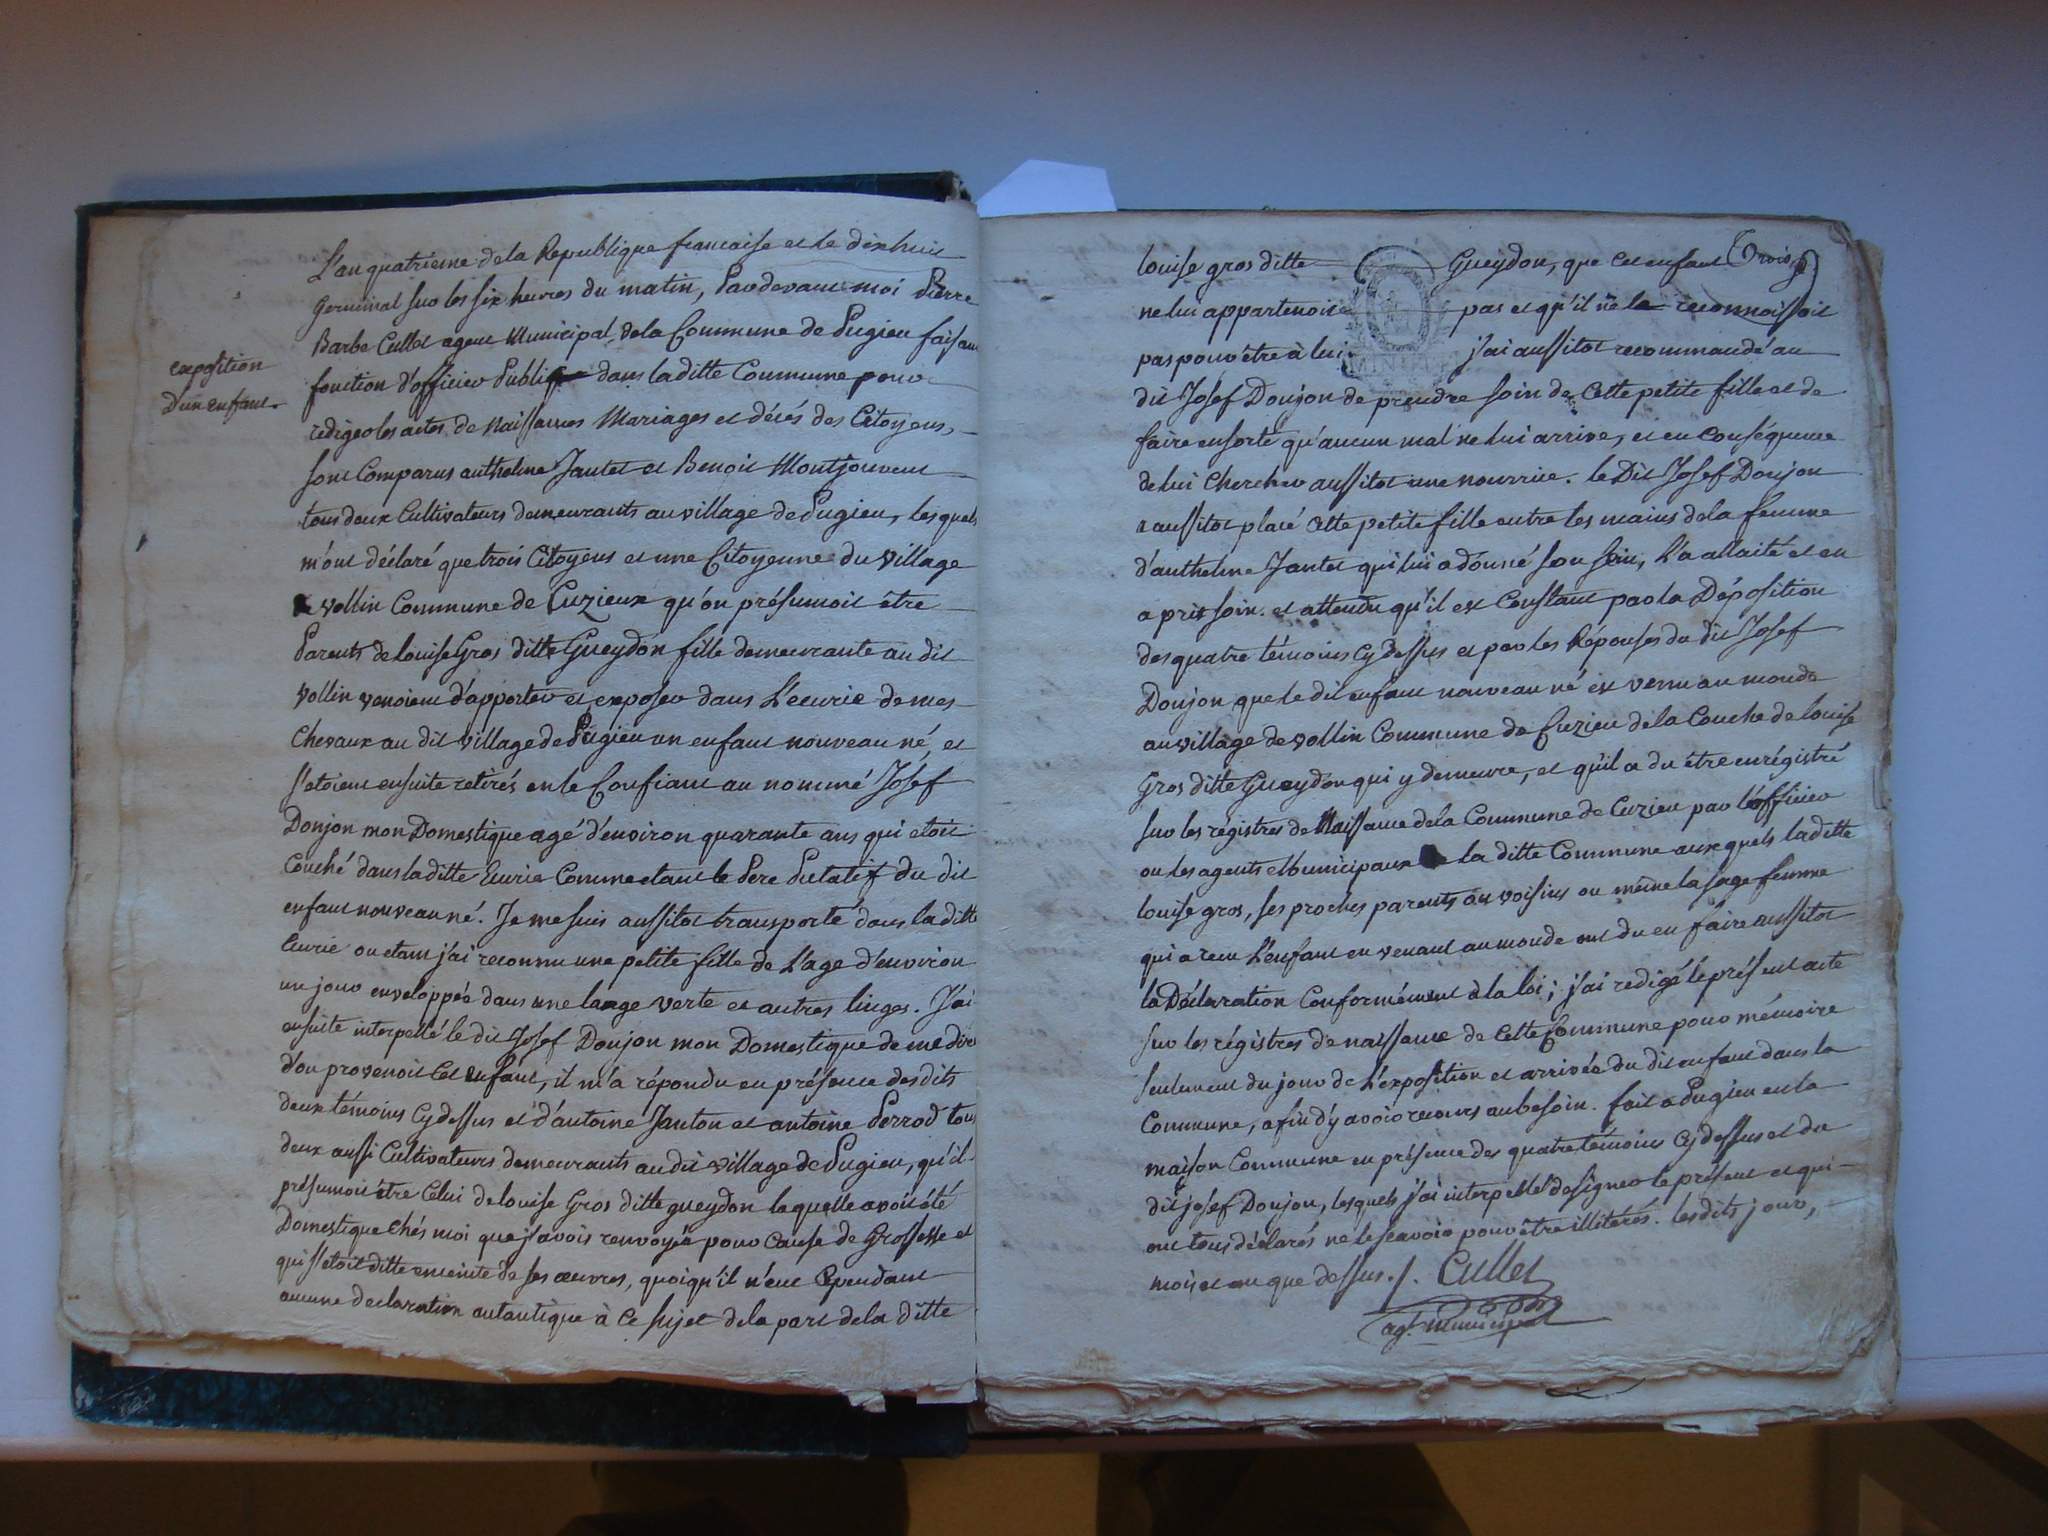 exposition
D'un enfant.
L'an quatrieme de la Republique francaise et le dixhuit
Germinal sur les six heures du matin, Pardevant moi Pierre
Barbe Cullet agent Municipal de la Commune de Pugieu faisant
fonction d'officier Public dans laditte Commune pour
rediger les actes de Naissances Mariages et décés des Citoyens,
sont Comparus anthelme Jantet et Benoit Montjouvent
tous deux Cultivateurs demeurants au village de Pugieu, les quels
m'ont déclaré que trois Citoyens et une Citoyenne du village
vollin Commune de Cuzieux qu'on présumoit être
Parents de Louise Gros ditte Gueydon fille demeurante au dit
vollin venoient d'apporter et exposer dans L'ecurie de mes
Chevaux au dit village de Pugieu un enfant nouveau né, et
s'etoient ensuite retirés en le Confiant au nommé Josef
Donjon mon Domestique agé d'environ quarante ans qui etoit
Couché dans laditte Ecurie Comme etant le Pere Putatif du dit
enfant nouveau né. Je me suis aussitot transporté dans la ditte
Ecurie ou etant j'ai reconnu une petite fille de L'age d'environ
un jour enveloppée dans une lange verte et autres linges. J'ai
ensuite interpellé le dit Josef Donjon mon Domestique de me dire
d'ou provenoit Cet enfant, il m'a répondu en présence des dits
deux témoins Cy dessus et d'antoine Janton et antoine Perrod tous
deux aussi Cultivateurs demeurants au dit village de Pugieu, qu'il
présumoit être Celui de louise Gros ditte gueydon laquelle avoit été
Domestique Chés moi que j'avois renvoyée pour Cause de Grossesse et
qui s'etoit ditte enceinte de ses œuvres, quoiqu'il n'eut Cependant
aucune declaration autantique à Ce sujet de la part de la ditte
Trois
louise gros ditte Gueydon, que Cet enfant
ne lui appartenoit pas et qu'il ne le reconnoissoit
pas pour être à lui j'ai aussitot recommandé au
dit Josef Donjon de prendre soin de Cette petite fille et de
faire ensorte qu'aucun mal ne lui arrive, et en Conséquence
de lui Chercher aussitot une nourrice. le Dit Josef Donjon
a aussitot placé Cette petite fille entre les mains de la femme
d'anthelme Jantet qui lui a donné son sein, L'a allaité et en
a pris soin. et attendu qu'il est Constant par la Déposition
des quatre témoins Cy dessus et par les Réponses du dit Josef
Donjon que le dit enfant nouveau né est venu au monde
au village de vollin Commune de Cuzieu de la Couche de louise
Gros ditte Gueydon qui y demeure, et qu'il a du être enrégistré
sur les régistres de Naissance de la Commune de Cuzieu par l'officier
ou les agents Municipaux la ditte Commune auxquels laditte
louise gros, ses proches parents ou voisins ou même la sage femme
qui a recu L'enfant en venant au monde ont du en faire aussitot
la Déclaration Conformément à la loi; j'ai redigé le présent acte
sur les régistres de naissance de Cette Commune pour mémoire
seulement du jour de L'exposition et arrivée du dit enfant dans la
Commune, afin d'y avoir recours au besoin. fait a Pugieu en la
maison Commune en présence des quatre témoins Cy dessus et du
dit josef Donjon, lesquels j'ai interpellé de signer le présent et qui
ont tous déclarés ne le scavoir pour être illitérés. les dits jour,
mois et an que dessus. /. Cullet
agt. municipal